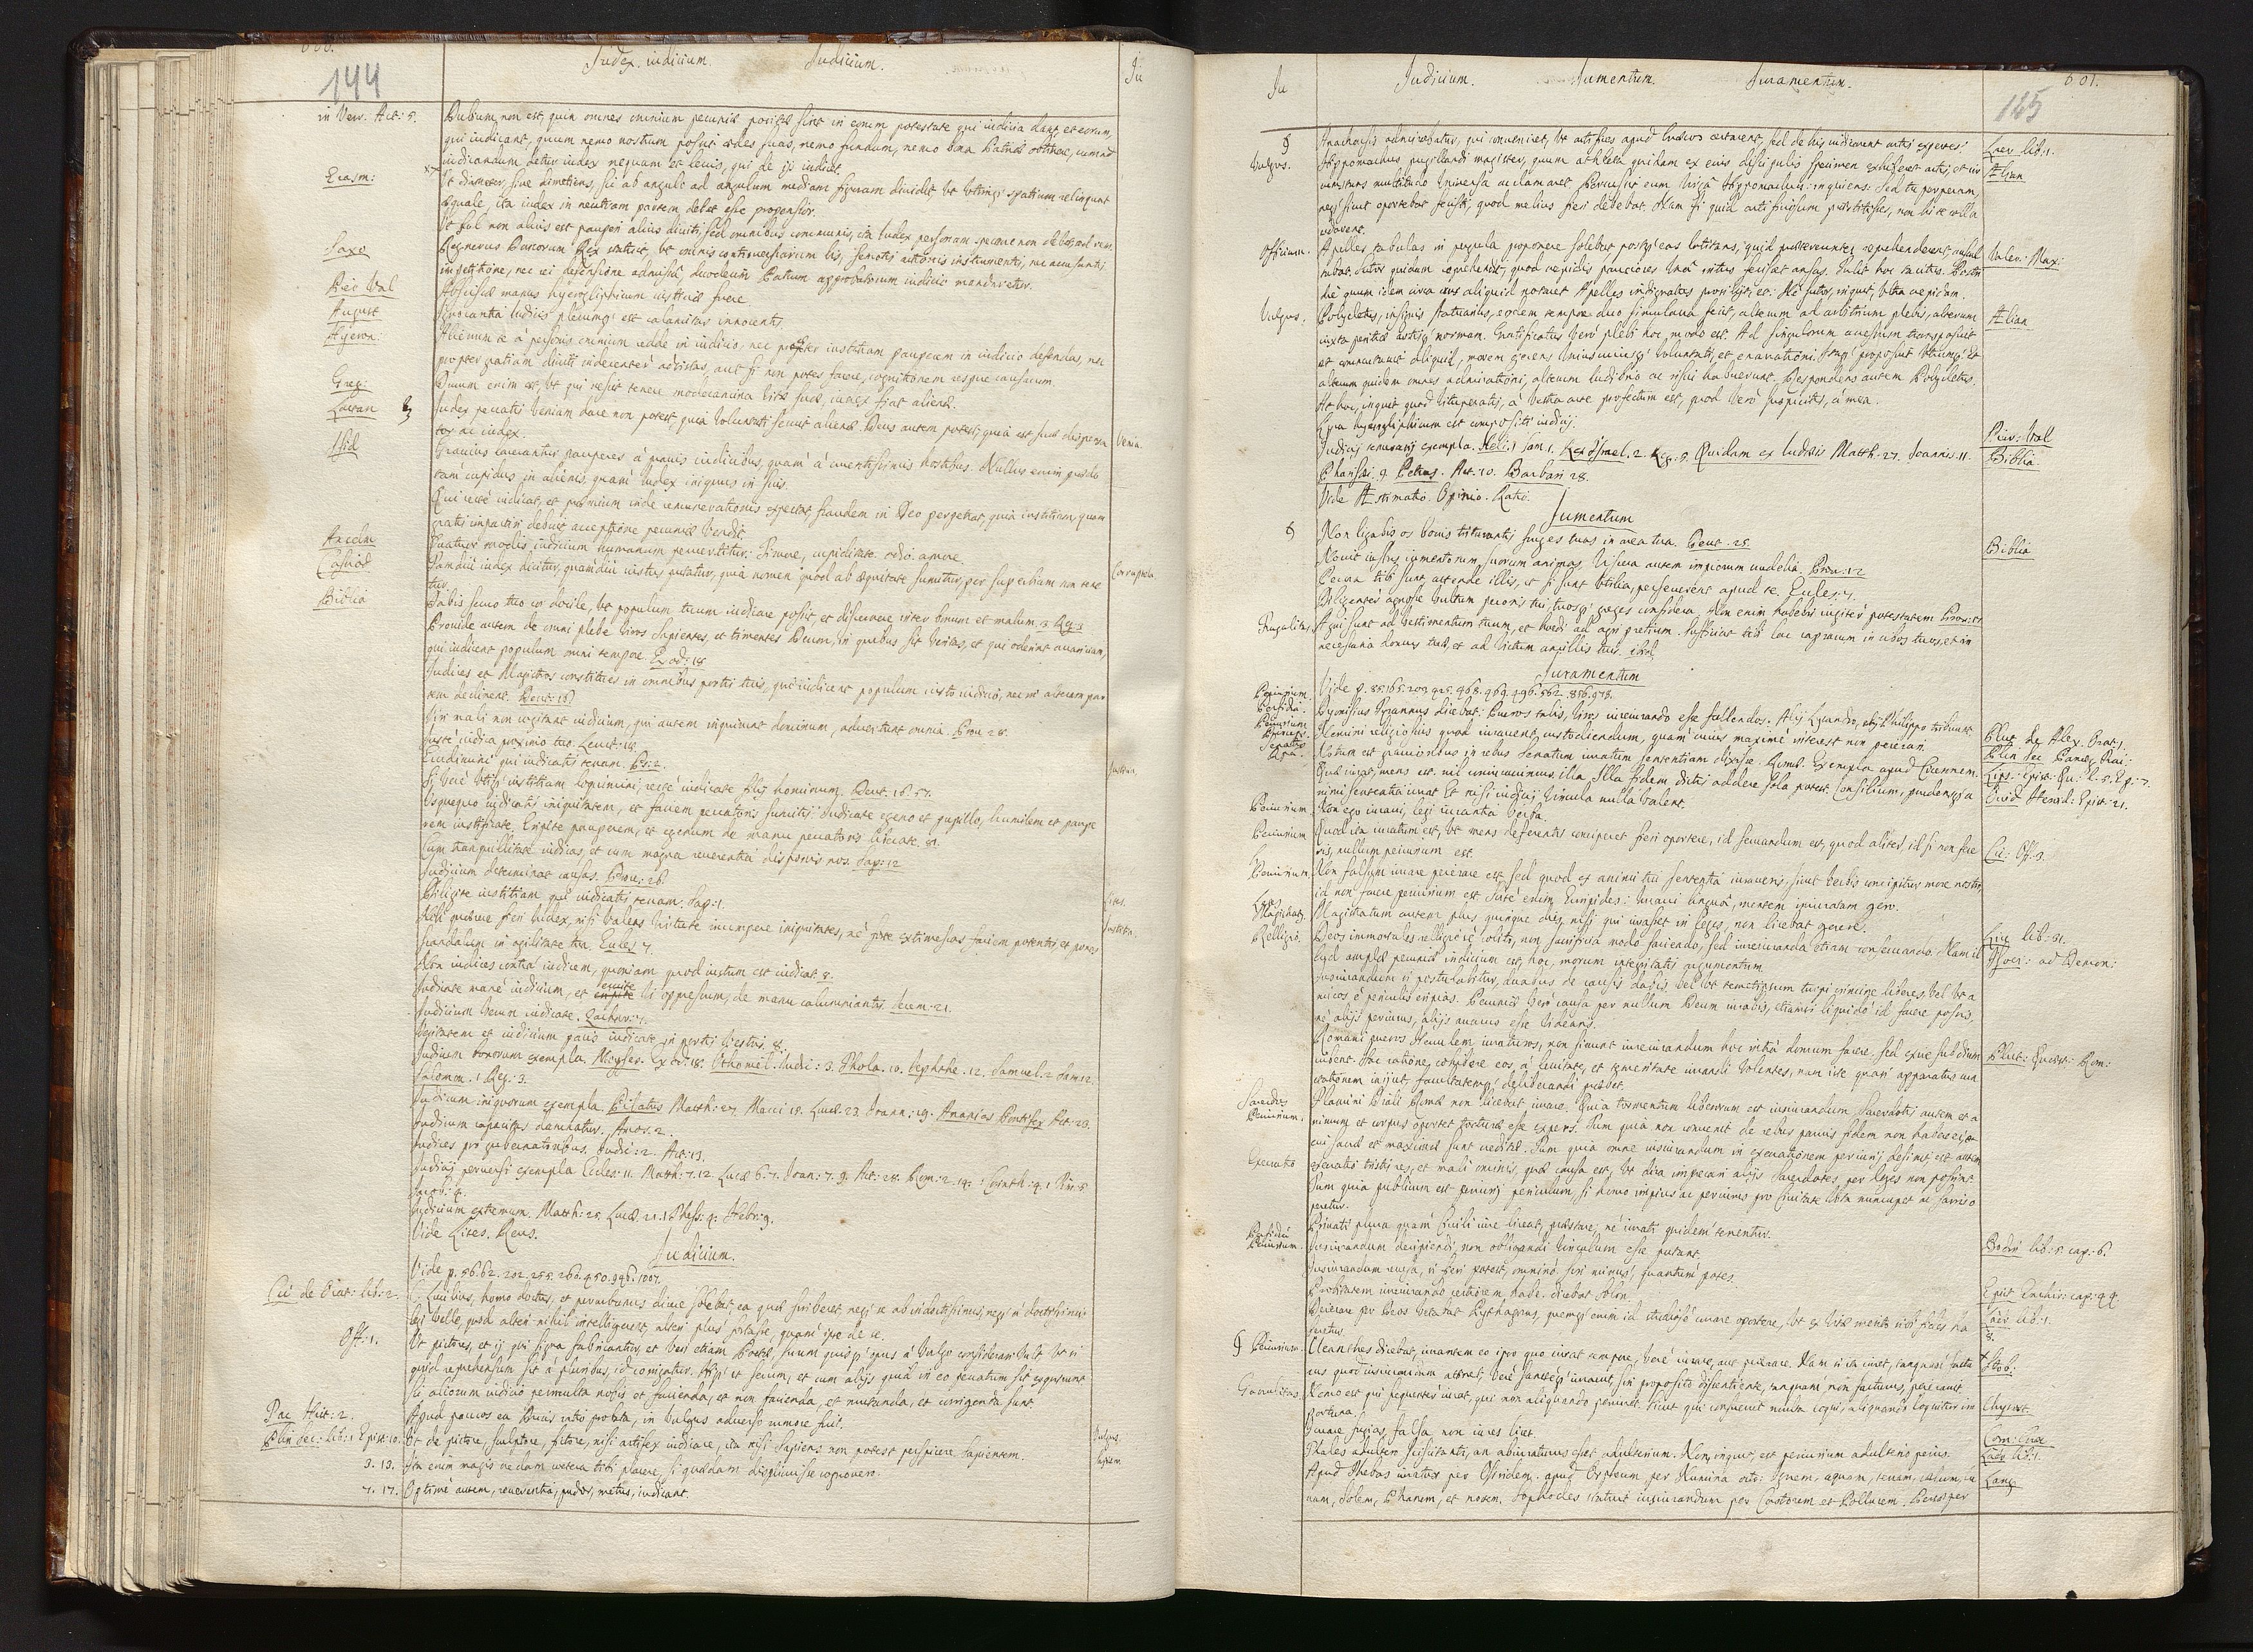 144
Judex. iudicium. Judicium.
Ju
in Verr. Act: 5.
Dubium non est, quin omnes omnium pecuniæ positæ sint in eorum potestate qui iudicia dant, et eorum,
qui iudicant, quum nemo nostrum possit ædes suas, nemo fundum, nemo bona Patria obtinere, cum ad
iudicandum detur iudex nequam et leuis, qui de ijs iudicet.
Erasm:
Vt diameter, siue dimetiens, sic ab angulo ad angulum mediam figuram diuidit, vt vtrinque spatium relinquat
æquale, ita iudex in neutram partem debet esse propensior.
Vt sol non alius est pauperi alius diuiti, sed omnibus communis, ita Judex personam spectare non debet, sed rem.
Saxo
Regnerus Danorum Rex statuit, vt omnis controuersiarum lis, semotis actionis instrumentis, nec accusantis
impetitione, nec rei defensione admissa duodecim Patrum approbatorum iudicio mandaretur.
Pier. Val
Abscissæ manus hyeroglyphicum iustitiæ fuere
August
Ignorantia Judicis plerumque est calamitas innocentis.
Hyeron:
Alienum te à personis omnium redde in iudicio, nec propter iustitiam pauperem in iudicio defendas, nec
propter gratiam diuiti indecenter adsistas, aut si non potes facere, cognitionem respue causarum.
Greg:
Durum enim est, vt qui nescit tenere moderamina vitæ suæ, iudex fiat alienæ.
Lactan
Judex peccatis veniam dare non potest, quia voluntati seruit alienæ. Deus autem potest, quia est suæ disputa
tor ac iudex.
Venia
Isid
Grauius lacerantur pauperes à prauis iudicibus, quam à cruentissimis hostibus. Nullus enim prædo
tam cupidus in alienis, quam Judex iniquus in suis.
Qui recte iudicat, et præmium inde remunerationis expectat, fraudem in Deo perpetrat, quia iustitiam, quam
gratis impartiri debuit acceptione pecuniæ vendit.
Anselm
Quatuor modis iudicium humanum peruertitur: Timore, cupiditate. odio. amore.
Cassiod
Tamdiu iudex dicitur, quamdiu iustus putatur, quia nomen quod ab æquitate sumitur, per superbiam non tene
tur.
Corruptela
Biblia
Dabis seruo tuo cor docile, vt populum tuum iudicare possit, et discernere inter bonum et malum. 3. Reg: 3
Prouide autem de omni plebe viros sapientes, et timentes Deum, in quibus sit veritas, et qui oderint auaritiam,
qui iudicent populum omni tempore. Exod: 18
Judices et Magistros constitues in omnibus portis tuis, qui iudicent populum iusto iudicio, nec in alteram par
tem declinent. Deut: 16
Viri mali non cogitant iudicium, qui autem inquirunt dominum, aduertunt omnia. Prou: 28.
Juste iudica proximo tuo. Leuit: 19.
Erudimini qui iudicatis terram. Ps: 2.
Si vere vtique iustitiam loquimini, recte iudicate filij hominum. Deut. 16. 57.
Justitia
Vsquequo iudicatis iniquitatem, et faciem peccatoris sumitis: Judicate egeno et pupillo, humilem et paupe
rem iustificate. Eripite pauperem, et egenum de manu peccatoris liberate. 81.
Cum tranquillitate iudicas, et cum magna reuerentia disponis nos. Sap: 12
Judicium determinat causas. Prou: 26
Diligite iustitiam qui iudicatis terram. Sap: 1.
Noli quærere fieri Judex, nisi valeas virtute irrumpere iniquitates, ne forte extimescas faciem potentis, et ponas
scandalum in agilitate tua. Eccles: 7.
Non iudices contra iudicem, quoniam quod iustum est iudicat. 8.
Judicate mane iudicium, et eruite vi oppressum, de manu calumniantis. Jerem: 21.
Judicium verum iudicate. Zachar: 7.
Veritatem et iudicium pacis iudicate in portis vestris. 8.
Judicum bonorum exempla. Moyses. Exod: 18. Othoniel. Judic: 3. Thola. 10. Jephthe. 12. Samuel. 2 Sam 12.
Salomon. 1 Reg: 3.
Judicum iniquorum exempla. Pilatus Matth: 27. Marci 15. Lucæ. 23. Joann: 19. Ananias Pontifex Act: 23.
Judicum captatus damnatur. Amos. 2.
Judices pro gubernatoribus. Judic: 2. Act: 13.
Judicij peruersi exempla Eccles: 11. Matth: 7. 12. Lucæ 6. 7. Joan: 7. 9. Act: 28. Rom: 2. 14. 1 Corinth: 4. 1 Tim: 5.
Jacob: 4.
Judicium extremum. Matth: 25. Lucæ. 21. 1 Thess: 4. Hebr: 9.
Vide Lites. Reus.
Judicium.
Vide p. 56. 62. 202. 255. 260. 450. 996. 1007.
Cic de Orat: lib: 2.
C. Lucilius, homo doctus, et perurbanus dicere solebat, ea quæ scriberet neque se ab indoctissimis, neque à doctissimis
legi velle, quod alteri nihil intelligerent, alteri plus fortasse, quam ipse de se.
Off: 1.
Vt pictores, et ij qui signa fabricantur, et vero etiam Poetæ, suum quisque opus à vulgo considerari vult vt si
quid reprehensum sit à pluribus, id corrigatur. Hique et secum, et cum alijs quid in eo peccatum sit exquirunt
sic aliorum iudicio permulta nobis et facienda, et non facienda, et mutanda, et corrigenda sunt
Tac Hist: 2.
Apud paucos ea ducis ratio probata, in vulgus aduerso rumore fuit.
Vulgus
Plin sec: lib: 1 Epist: 10.
Vt de pictore, sculptore, fictore, nisi artifex iudicare, ita nisi Sapiens non potest perspicere sapientem.
Sapiens
3. 13.
Ita enim magis credam cætera tibi placere, si quædam displicuisse cognouero.
7. 17.
Optime autem, reuerentia, pudor, metus, iudicant.
Ju
Judicium. Jumentum. Juramentum.
601.
145
Anacharsis admirabatur, qui conueniret, vt artifices apud Græcos certarent, sed de his iudicarent artis expertes.
Laer lib: 1.
Vulgus.
Hippomachus pugillandi magister, quum athleta quidam ex eius discipulis specimen exhiberet artis, et cir
cumstans multitudo vniuersa acclamaret Percussit eum virga Hippomachus: inquiens: Sed tu perperam,
neque sicut oportebat fecisti, quod melius fieri debebat. Nam si quid artificiosum præstitisses, non hi te illa
udarent.
Ælian
Officium.
Apelles tabulas in pergula proponere solebat, postque eas latitans, quid prætereuntes reprehenderent, auscul
tabat, sutor quidam reprehendit, quod crepidis pauciores vna intus fecisset ansas. Tulit hoc tacitus. Postri
die quum idem circa crus aliquid notaret Apelles indignatus prospexit, et: Ne sutor, inquit, vltra crepidam.
Valer: Max:
Vulgus.
Polycletus, insignis statuarius, eodem tempore duo simulacra fecit, alterum ad arbitrium plebis, alterum
iuxta peritiæ artisque normam. Gratificatus vero plebi hoc modo est. Ad singulorum accessum transposuit
et commutauit aliquid, morem gerens vniuscuiusque voluntati, et enarrationi. Itaque proposuit vtrumque. Et
alterum quidem omnes admirationi, alterum ludibrio ac risui habuerunt. Respondens autem Polycletus.
At hoc, inquit quod vituperatis, à vestra arte profectum est, quod vero suspicitis, à mea.
Ælian
Lyra hyeroglyphicum est compositi iudicij.
Pier: Vall
Judicij temerarij exempla. Heli. 1 Sam. 1. Rex Israel. 2. Reg: 5. Quidam ex Judæis Matth: 27. Joannis. 11.
Pharisæi. 9. Petrus. Act. 10. Barbari 28.
Biblia
Vide Æstimatio. Opinio. Ratio.
Jumentum
Non ligabis os bouis triturantis fruges tuas in area tua. Deut. 25.
Biblia
Nouit iustus iumentorum suorum animas. Viscera autem impiorum crudelia. Prou: 12
Pecora tibi sunt attende illis, et si sunt vtilia, perseuerent apud te. Eccles: 7.
Diligenter agnosce vultum pecoris tui, tuosque greges considera. Non enim habebis iugiter potestatem. Prou: 27
Frugalitas.
Agni sunt ad vestimentum tuum, et hoedi ad agri pretium. Sufficiat tibi lac caprarum in cibos tuos, et in
necessaria domus tuæ, et ad victum ancillis tuis. ibid
Juramentum
Vide p. 85. 165. 203. 425. 468. 469. 496. 562. 856. 978.
Periurium.
Perfidia
Dyonisius tyrannus dicebat: Pueros talis, viros iureiurando esse fallendos. Alij Lysandro, alij Philippo tribuunt.
Plut de Alex. Orat: 1.
Periurium
Princeps.
Nemini religiosius quod iurauerit, custodiendum, quam cuius maxime interest non peierari.
Plin sec Paneg Trai:
Senatus
Notum est grauioribus in rebus Senatum iuratum sententiam dixisse.
Lips: Epist. Qu: l. 5. Ep: 7.
Quæ iurat, mens est. nil coniurauimus illa. Illa fidem dictis addere sola potest. Consilium, prudensque a
nimi sententia iurat. Et nisi iudicij vincula nulla valent.
Ouid Heroid: Epist: 21.
Periurium
Non ego iuraui, legi iurantia verba.
Periurium
Quod ita iuratum est, vt mens deferentis conciperet fieri oportere, id seruandum est, quod aliter id si non fece
ris, nullum periurium est.
Cic: Off: 3.
Periurium
Non falsum iurare peierare est, sed quod ex animi tui sententia iuraueris, sicut verbis concipitur more nostro
id non facere periurium est. Scite enim Euripides: Juraui lingua, mentem iniuratam gero.
Magistratus
Magistratum autem plus quinque dies, nisi qui iurasset in leges, non licebat gerere.
Liu lib: 31.
Relligio.
Deos immortales relligiose colito, non sacrificia modo faciendo, sed iureiuranda etiam conseruando. Nam il
lud amplæ pecuniæ indicium est, hoc, morum integritatis argumentum.
Isocr: ad Demon:
Jusiurandum si postulabitur, duabus de causis dabis vel vt temetipsum turpi crimine liberes, vel vt a
micos è periculis eripias. Pecuniæ vero causa per nullum Deum iurabis, etiamsi liquido id facere possis,
ne alijs periurus, alijs auarus esse videaris.
Romani pueros Herculem iuraturos, non sinunt iureiurandum hoc intra domum facere, sed exire sub dium
iubent. Hac ratione, cohibere eos, à leuitate, et temeritate iurandi volentes, nam iste quasi apparatus cun
ctationem inijcit, facultatemque deliberandi præbet.
Plut: Quæst: Rom:
Sacerdos
Periurium.
Flamini Diali Romæ non licebat iurare. Quia tormentum liberorum est iusiurandum, Sacerdotis autem et a
nimum et corpus oportet torturæ esse expers. Tum quia non conuenit de rebus paruis fidem non habere ei, cui
cui sacra et maxima sunt credita. Tum quia omne iusiurandum in execrationem periurij desinit est autem
Execratio
execratio tristis res, et mali ominis, quæ causa est, vt dira imprecari alijs sacerdotes per leges non possint.
Tum quia publicum est periurij periculum, si homo impius ac periurus pro Ciuitate vota nuncupet ac sacris o
peretur.
Priuati plura quam Ciuili iure liceat, præstare, ne iurati quidem tenentur.
Perfidia
Periurium.
Jusiurandum decipiendi, non obligandi vinculum esse putant.
Bodin lib: 5. cap: 6.
Jusiurandum recusa, si fieri potest, omnino. sin minus, quantum potes.
Epict Enchir: cap: 44.
Probitatem iureiurando certiorem habe. dicebat Solon.
Laer lib: 1.
Deierare per Deos vetabat Pythagoras, quemque enim id studiose curare oportere, vt ex vitæ merito ipsi fides ha
beretur.
8.
Periurium.
Cleanthes dicebat, iurantem eo ipso quo iurat tempore, vere iurare, aut peierare. Nam si ita iuret, tanquam factu
rus quod iusiurandum attinet, vere sancteque iurauit, sin proposito dissentiente, tanquam non facturus, peierauit
Stob:
Garrulitas
Nemo est qui frequenter iurat, qui non aliquando peieret. Sicut qui consueuit multa loqui, aliquando loquitur im
portuna.
Chrysost.
Jurare fugias, falsa non iures licet.
Thales adultero sciscitanti, an abiuraturus esset adulterium. Non, inquit, est periurium adulterio peius.
Laer lib: 1.
Apud Thebas iuratur per Osiridem. apud Orpheum per Numina octo: Ignem, aquam, terram, cælum, lu
nam, Solem, Phanem, et noctem. Sophocles statuit iusiurandum per Castorem et Pollucem. Persæ per
Lang